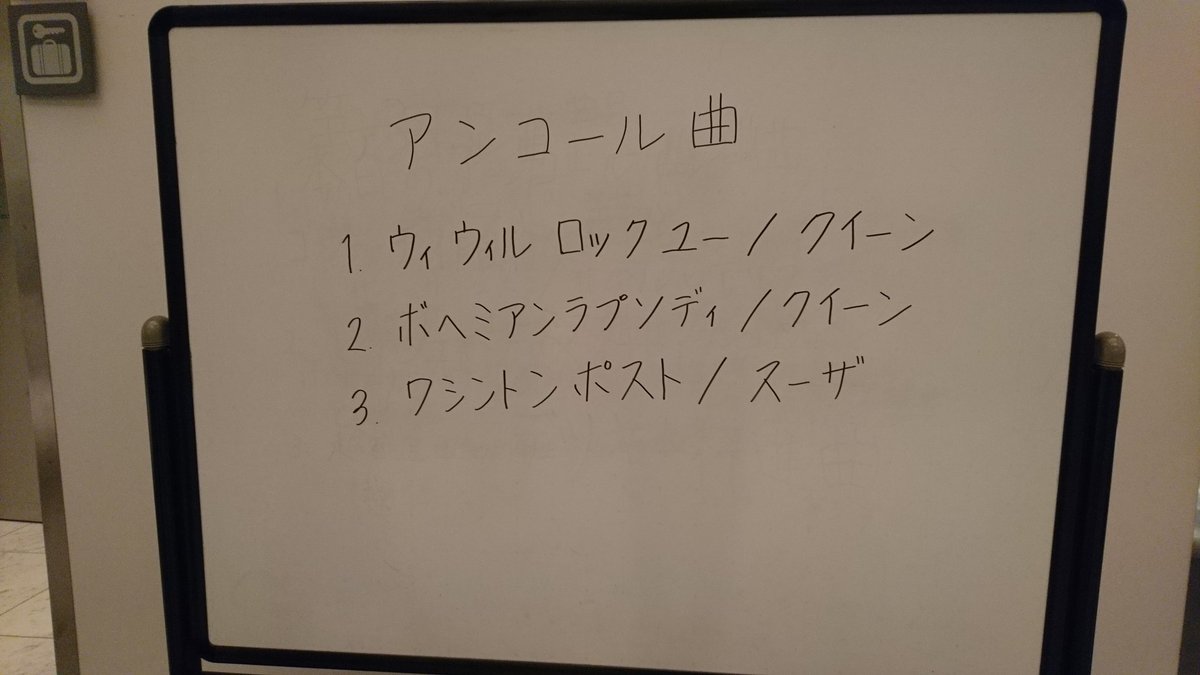 アンコール曲
1. ウィ ウィル ロック ユー / クイーン
2. ボヘミアンラプソディ / クイーン
3. ワシントン ポスト / スーザ